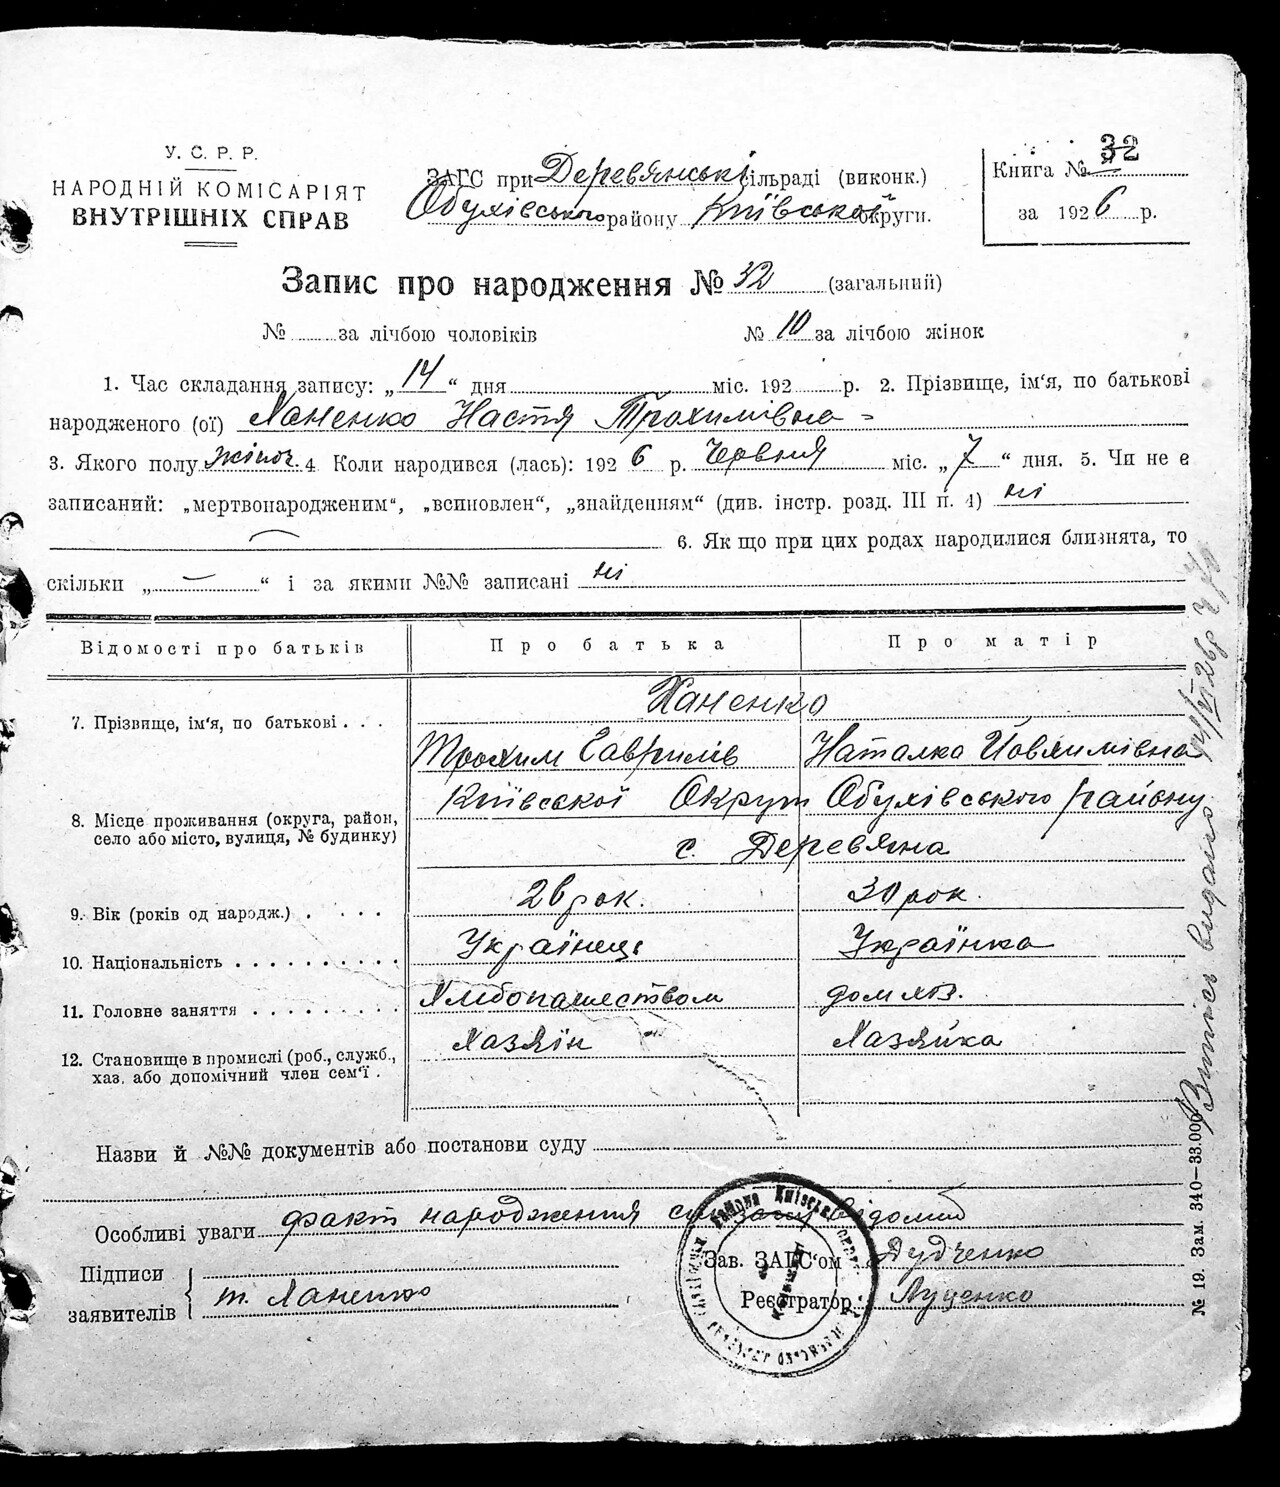 У. С. Р. Р.
НАРОДНІЙ КОМІСАРІЯТ
ВНУТРІШНІХ СПРАВ
ЗАГС при Деревянські сільраді (виконк.)
Обухівського району Київської округи.
Книга № 32
за 1926 р.
Запис про народження № 32 (загальний)
№ ......... за лічбою чоловіків № 10 за лічбою жінок
1. Час складання запису: „14“ дня ......... міс. 192 ...... р. 2. Прізвище, ім'я, по батькові
народженого (ої) Ханенко Настя Трохимівна
3. Якого полу жіноч. 4 Коли народився (лась): 1926 р. Червня міс. „7“ дня. 5. Чи не є
записаний: „мертвонародженим“, „всиновлен“, „знайденням“ (див. інстр. розд. III п. 4) ні
6. Як що при цих родах народилися близнята, то
скільки „—“ і за якими №№ записані ні
Відомості про батьків Про батька Про матір
7. Прізвище, ім'я, по батькові . . . Ханенко
Трохим Гаврилів Наталка Йовхимівна
8. Місце проживання (округа, район, село або місто, вулиця, № будинку) Київської Округи Обухівського району
с. Деревяна
9. Вік (років од народж.) . . . . 26 рок. 30 рок.
10. Національність . . . . . . . . . . Українець Українка
11. Головне заняття . . . . . . . . . Хлібопашеством дом хоз.
12. Становище в промислі (роб., служб., хаз. або допомічний член сем'ї . Хазяїн Хазяйка
Назви й №№ документів або постанови суду
Особливі уваги факт народження відомий
Підписи заявителів Т. Ханенко
Зав. ЗАГС'ом Дудченко
Реєстратор Луценко
№ 19. Зам. 340—33.000
Випись видано